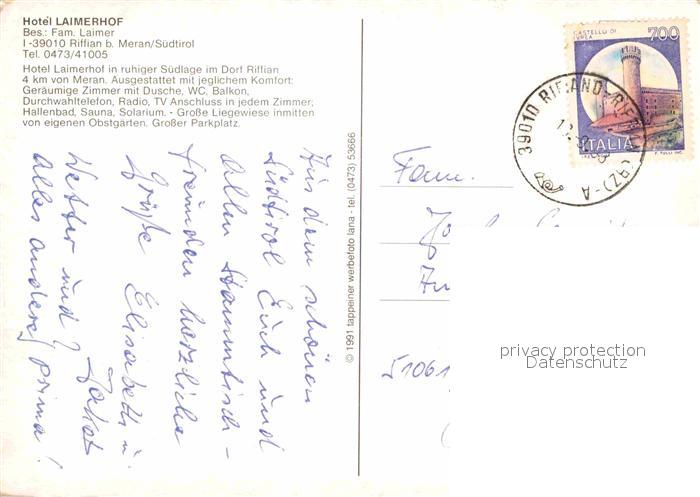 Hotel LAIMERHOF
Bes.: Fam. Laimer
I -39010 Riffian b. Meran/Südtirol
Tel. 0473/41005
Hotel Laimerhof in ruhiger Südlage im Dorf Riffian
4 km von Meran. Ausgestattet mit jeglichem Komfort:
Geräumige Zimmer mit Dusche, WC, Balkon,
Durchwahltelefon, Radio, TV Anschluss in jedem Zimmer;
Hallenbad, Sauna, Solarium. - Große Liegewiese inmitten
von eigenen Obstgarten. Großer Parkplatz.
Aus dem schönen
Südtirol Euch und
allen Stammtisch-
freunden herzliche
Grüße Elisabeth u.
Wetter und
alles andere prima!
© 1991 tappeiner werbefoto lana - tel. (0473) 53666
CASTELLO DI
IVREA
700
ITALIA
39010 RIFIANO-RIFFIAN (BZ)-A
Fam.
51061
privacy protection
Datenschutz